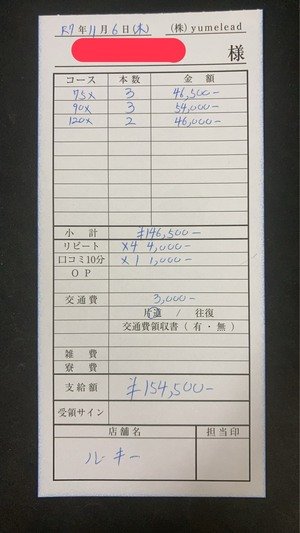 R7年11月6日(木) (株) yumelead
様
コース 本数 金額
75× 3 46,500-
90× 3 54,000-
120× 2 46,000-
小計 ¥146,500-
リピート ×4 4,000-
口コミ10分 ×1 1,000-
OP
交通費 3,000-
片道 / 往復
交通費領収書 ( 有・無 )
雑費
寮費
支給額 ¥154,500-
受領サイン
店舗名 担当印
ルーキー